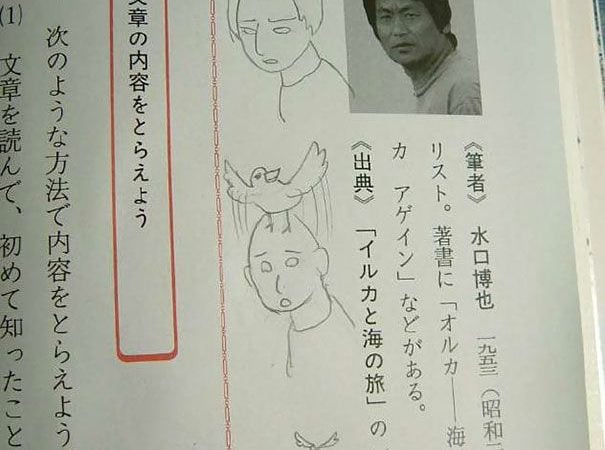 《筆者》　水口博也　一九五三（昭和二
リスト。著書に「オルカ――海
カ　アゲイン」などがある。
《出典》　「イルカと海の旅」の
文章の内容をとらえよう
次のような方法で内容をとらえよう
(1)　文章を読んで、初めて知ったこと